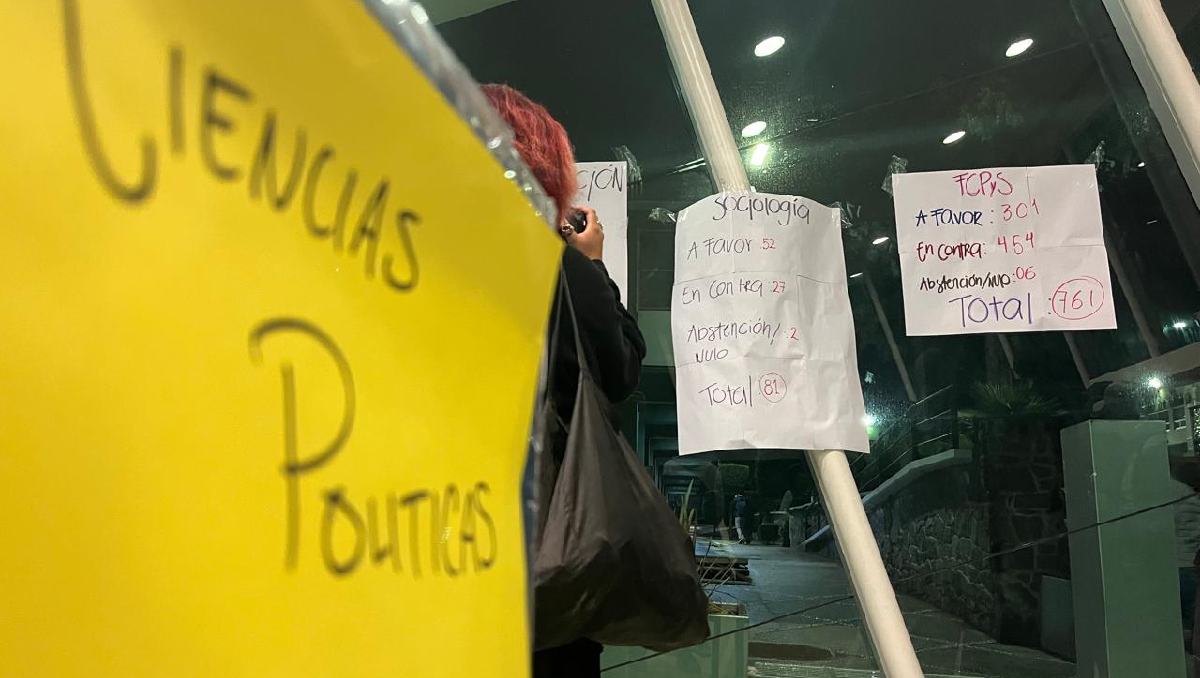 CIENCIAS
POLITICAS
CIÓN
Sociología
A FAVOR : 52
En contra : 27
Abstención/ : 2
NULO
Total : 81
FCPyS
A FAVOR : 301
En contra : 454
Abstención/NULO : 06
Total : 761